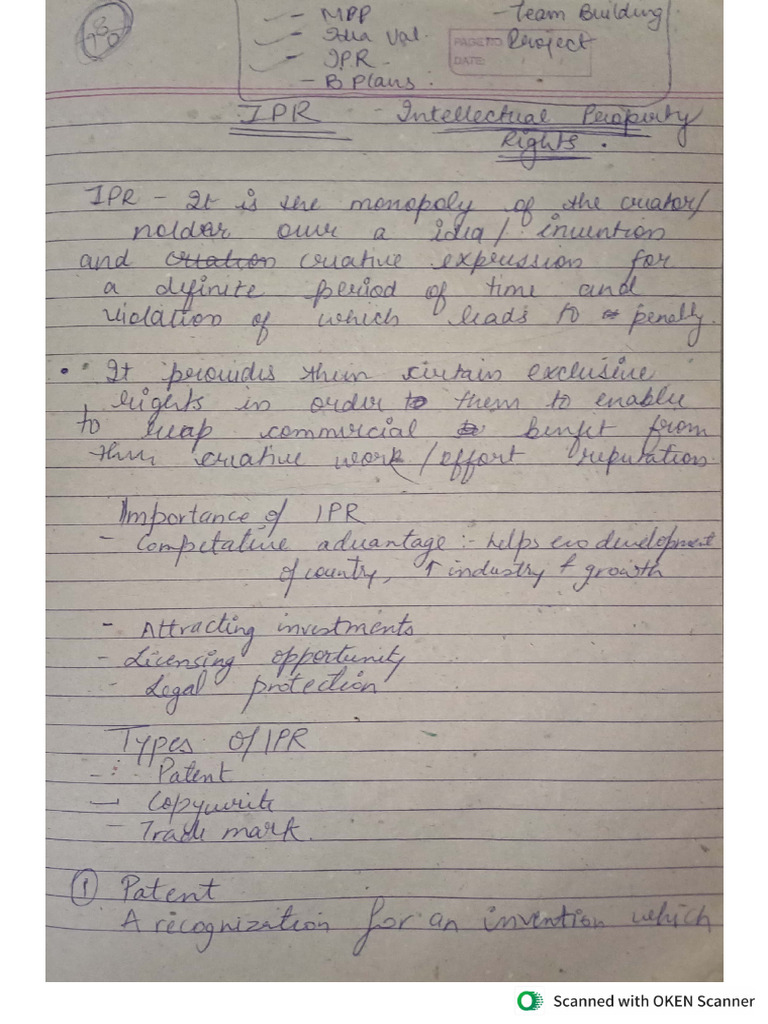 - MPP
- Team Building
- Idea Val.
PAGE NO.
Project
- IPR
DATE:
- B Plans
IPR - Intellectual Property
Rights.
IPR - It is the monopoly of the creator/
holder over a idea/ invention
and creation creative expression for
a definite period of time and
violation of which leads to penalty.
• It provides them certain exclusive
rights in order to them to enable
to reap commercial benefit from
their creative work/effort reputation
Importance of IPR
- Competative advantage :- helps eco development
of country, ↑ industry + growth
- Attracting investments
- Licensing opportunity
- Legal protection
Types of IPR
- Patent
- Copywrite
- Trade mark.
① Patent
A recognization for an invention which
Scanned with OKEN Scanner